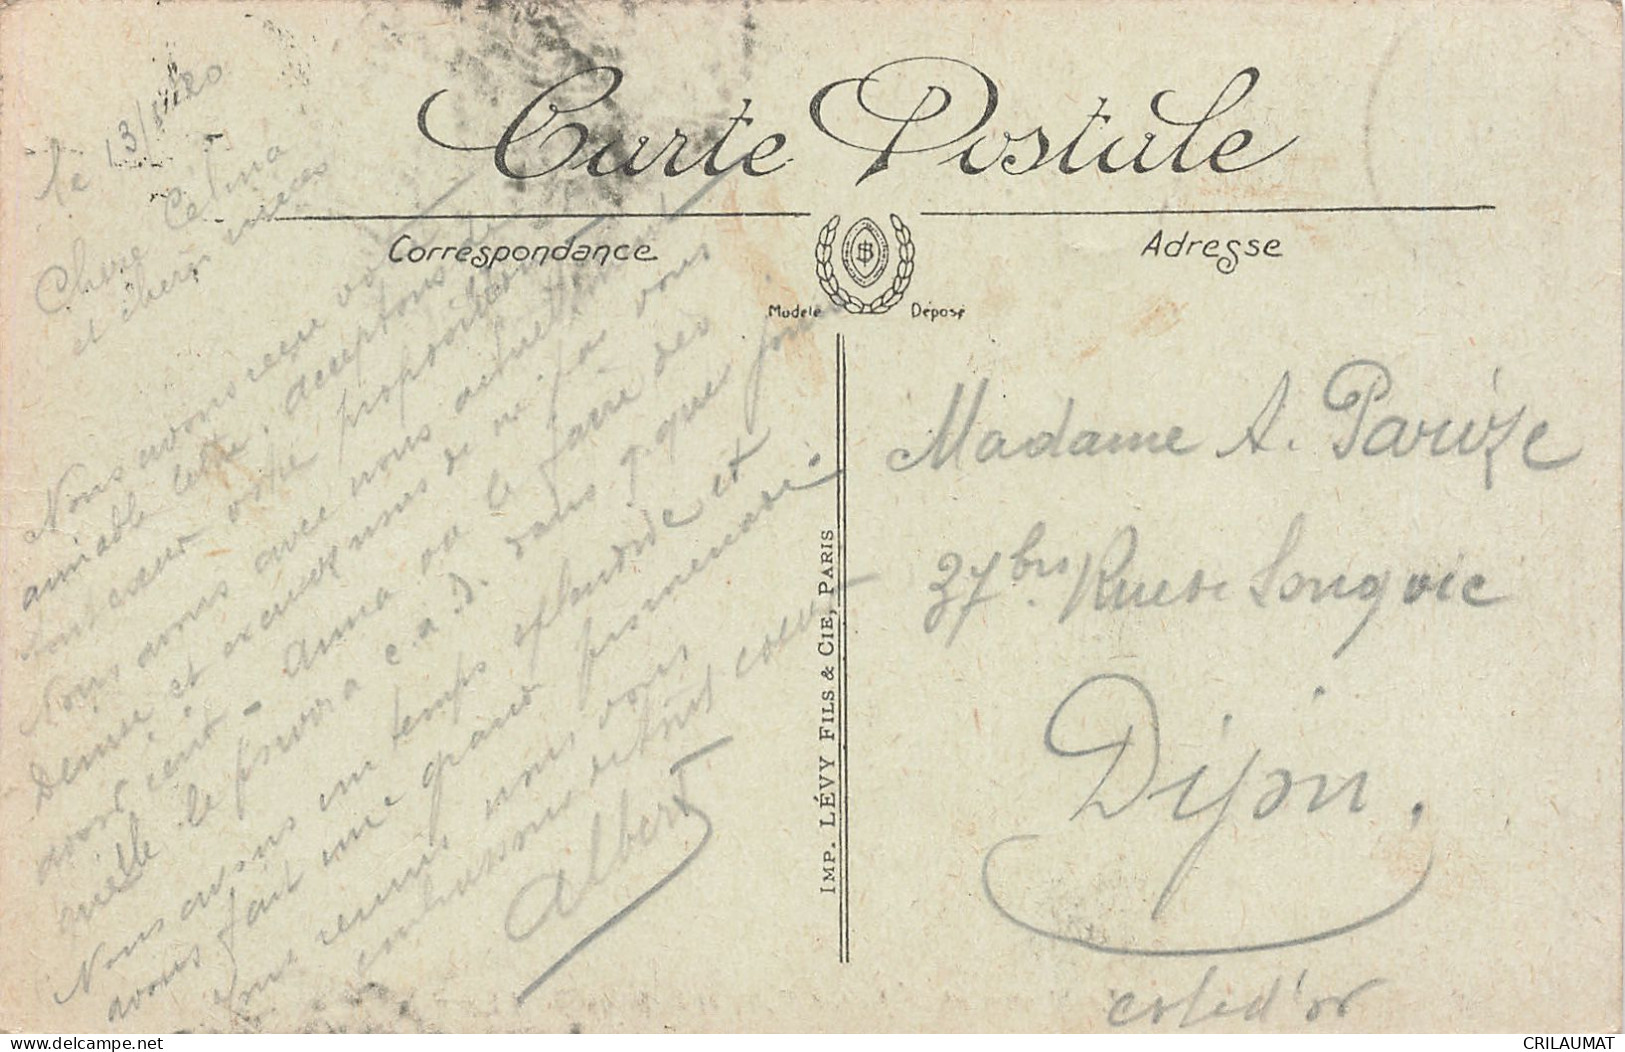 Carte Postale
Correspondance
Adresse
Modèle Déposé
IMP. LÉVY FILS & CIE, PARIS
le 13/ 20
Chère Celina
et chers nièces
Nous avons reçu vo
amiable lettre, acceptons de
tout cœur votre proposition
Nous avons avec nous actuellement
Denise et excusez nous de n'
vous
avoir écrit - Anna va le faire dès
qu'elle le pourra c.a.d. dans q.que jours
Nous avons un temps splendide et
avons fait une grande promenade.
Tous réunis nous vous
embrassons de tout cœur
Albert
Madame A. Parize
37bis Rue de Longvic
Dijon.
Cote d'or
www.delcampe.net
CRILAUMAT